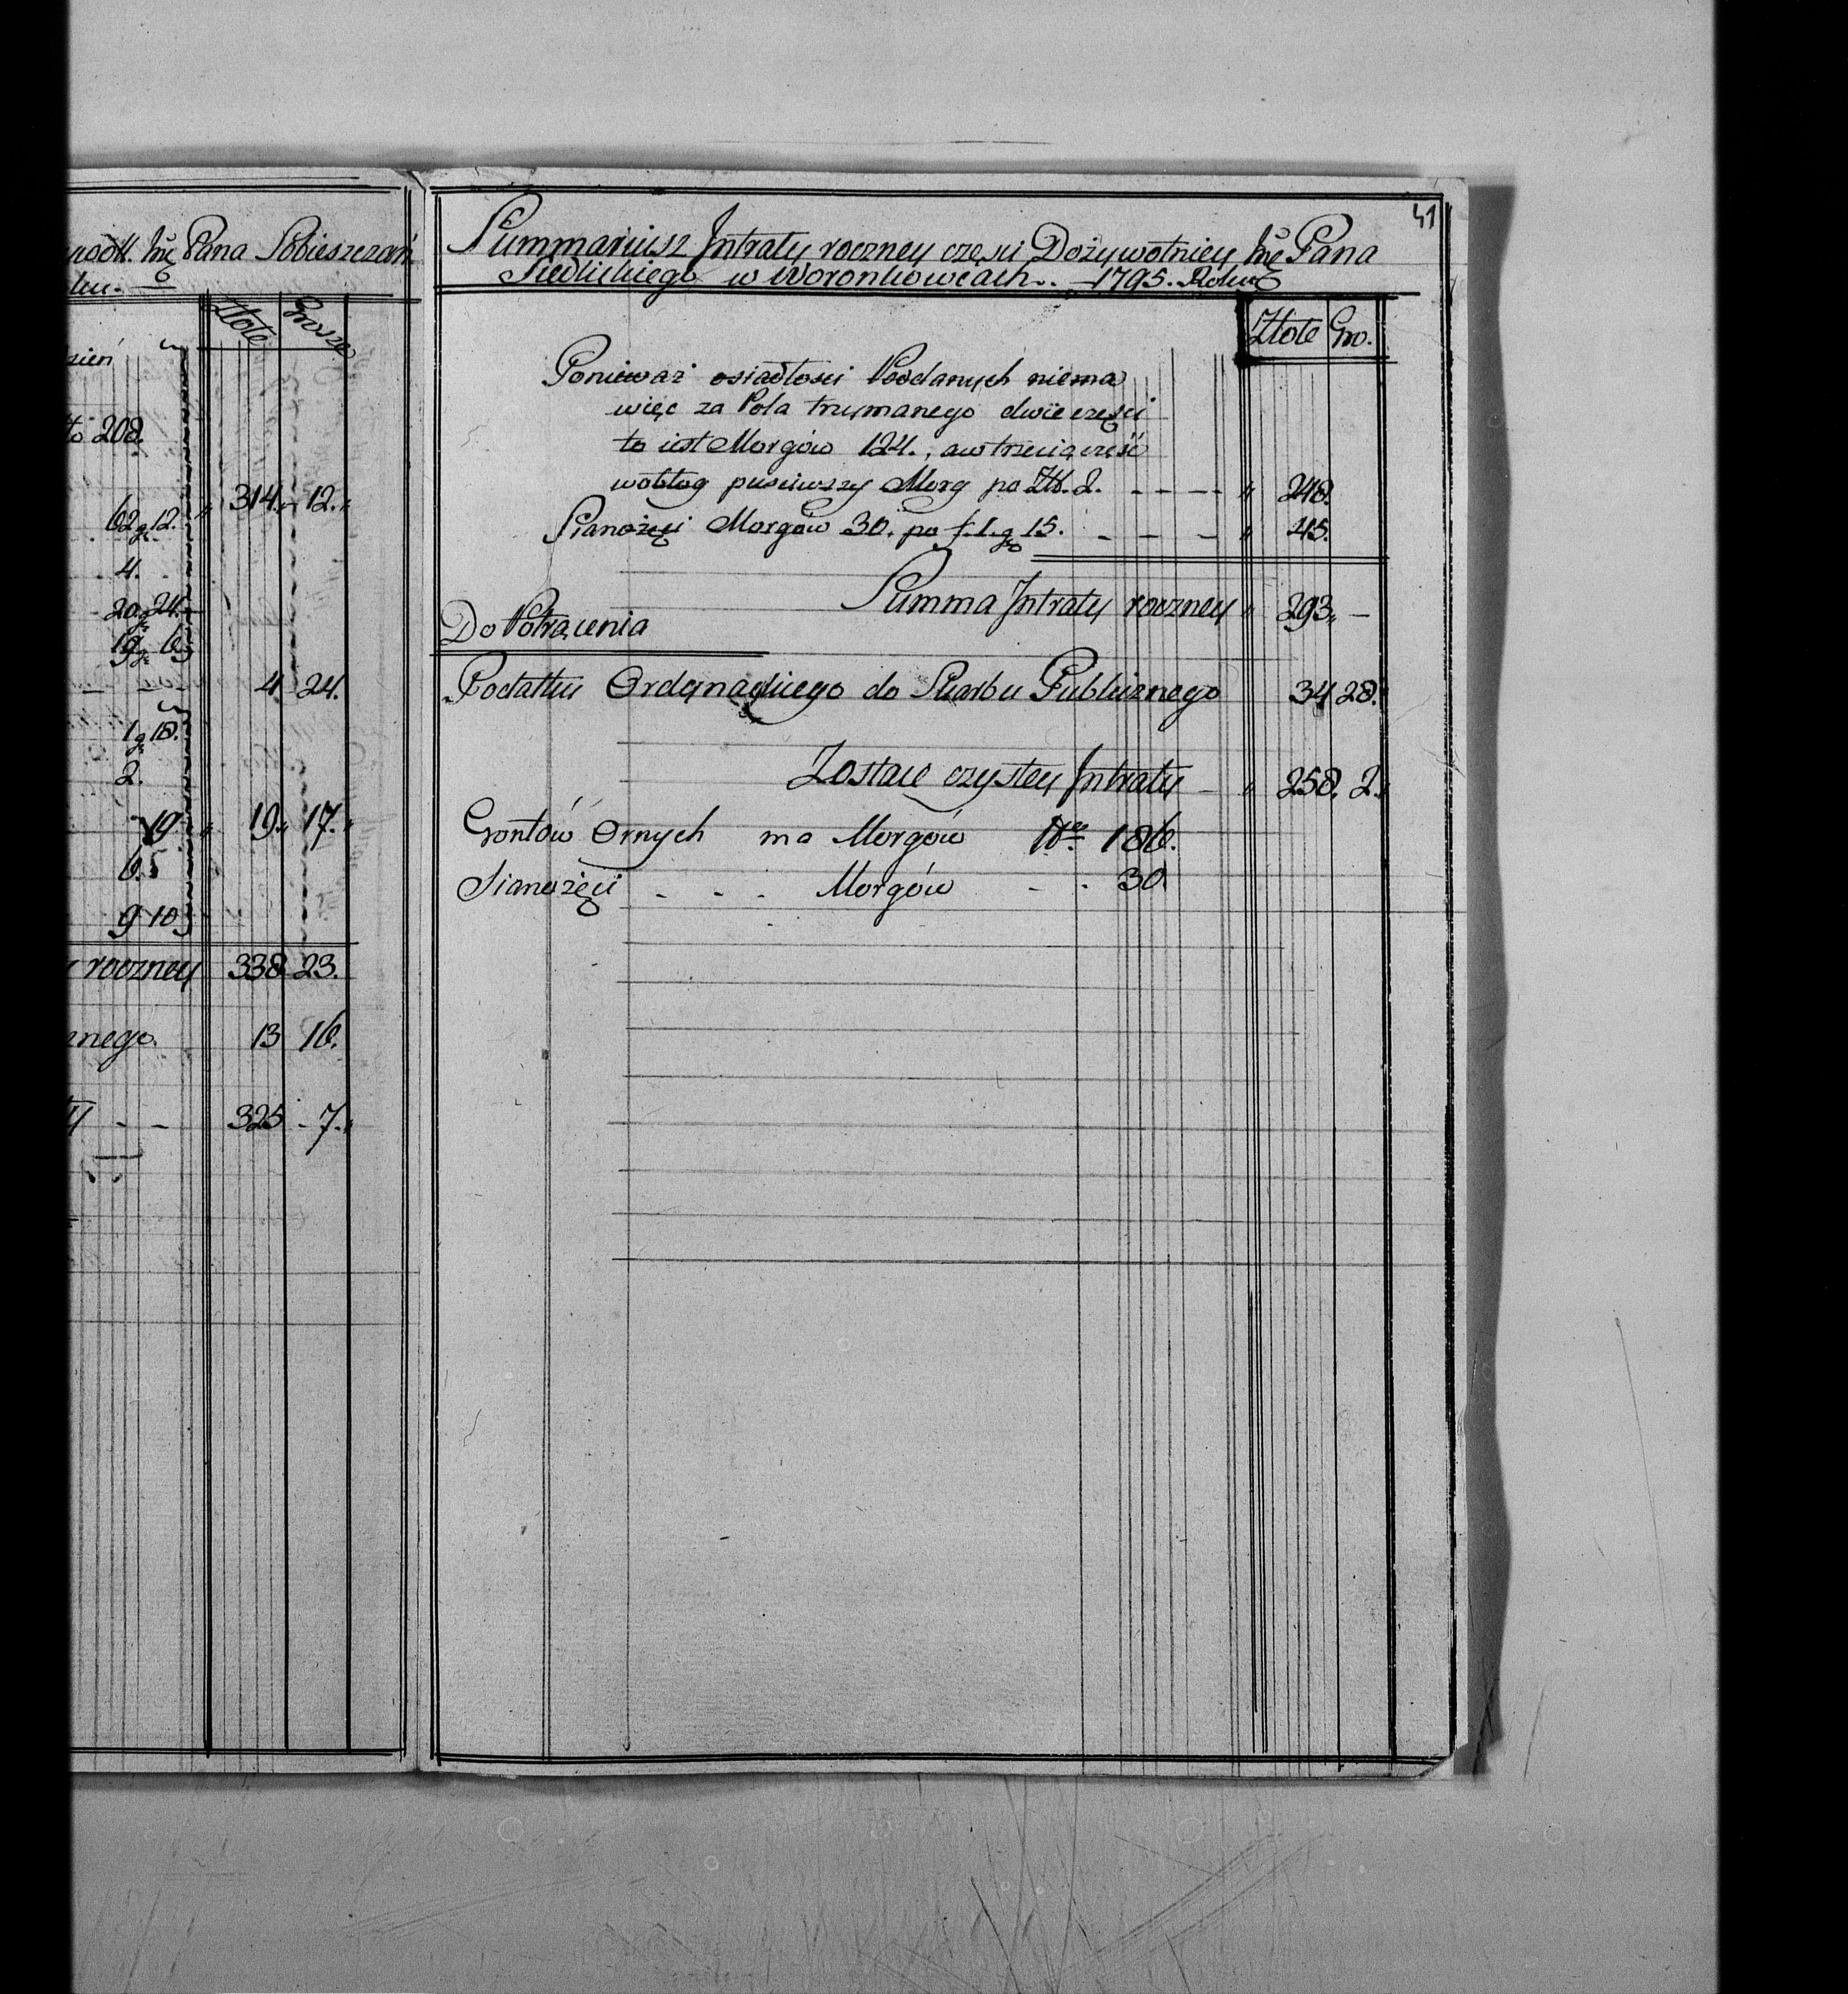 Pana Sobieszczań
Złote Grosze
dzień
to 208.
314. 12.
62 g 12.
4.
20 g 24.
19 g 6
4 24.
1 g 18.
2.
19 19. 17.
6.5
9 10
roczney 338 23.
znego. 13 16.
325 - 7.
41
Summariusz Intraty roczney częsci Dożywotniey Jmć Pana
Siedlickiego w Woronkowcach.. 1795. Roku
Złote Gro.
Ponieważ osiadłosci Poddanych niema
więc za Pola trzymanego dwie częsci
to iest Morgów 124., a w trzecią część
wobłog pusciwszy Morg po Zł. 2. - - - - " 248.
Sianożęci Morgów 30. po f. 1. g 15. - - - " 45.
Summa Intraty roczney " 293. -
Do Potrącenia
Podatku Ordynaryinego do Skarbu Publicznego 34 28.
Zostaie czystey Intraty - " 258. 2.
Gontów Ornych ma Morgów Nro 186.
Sianożęci - - - Morgów - - 30.